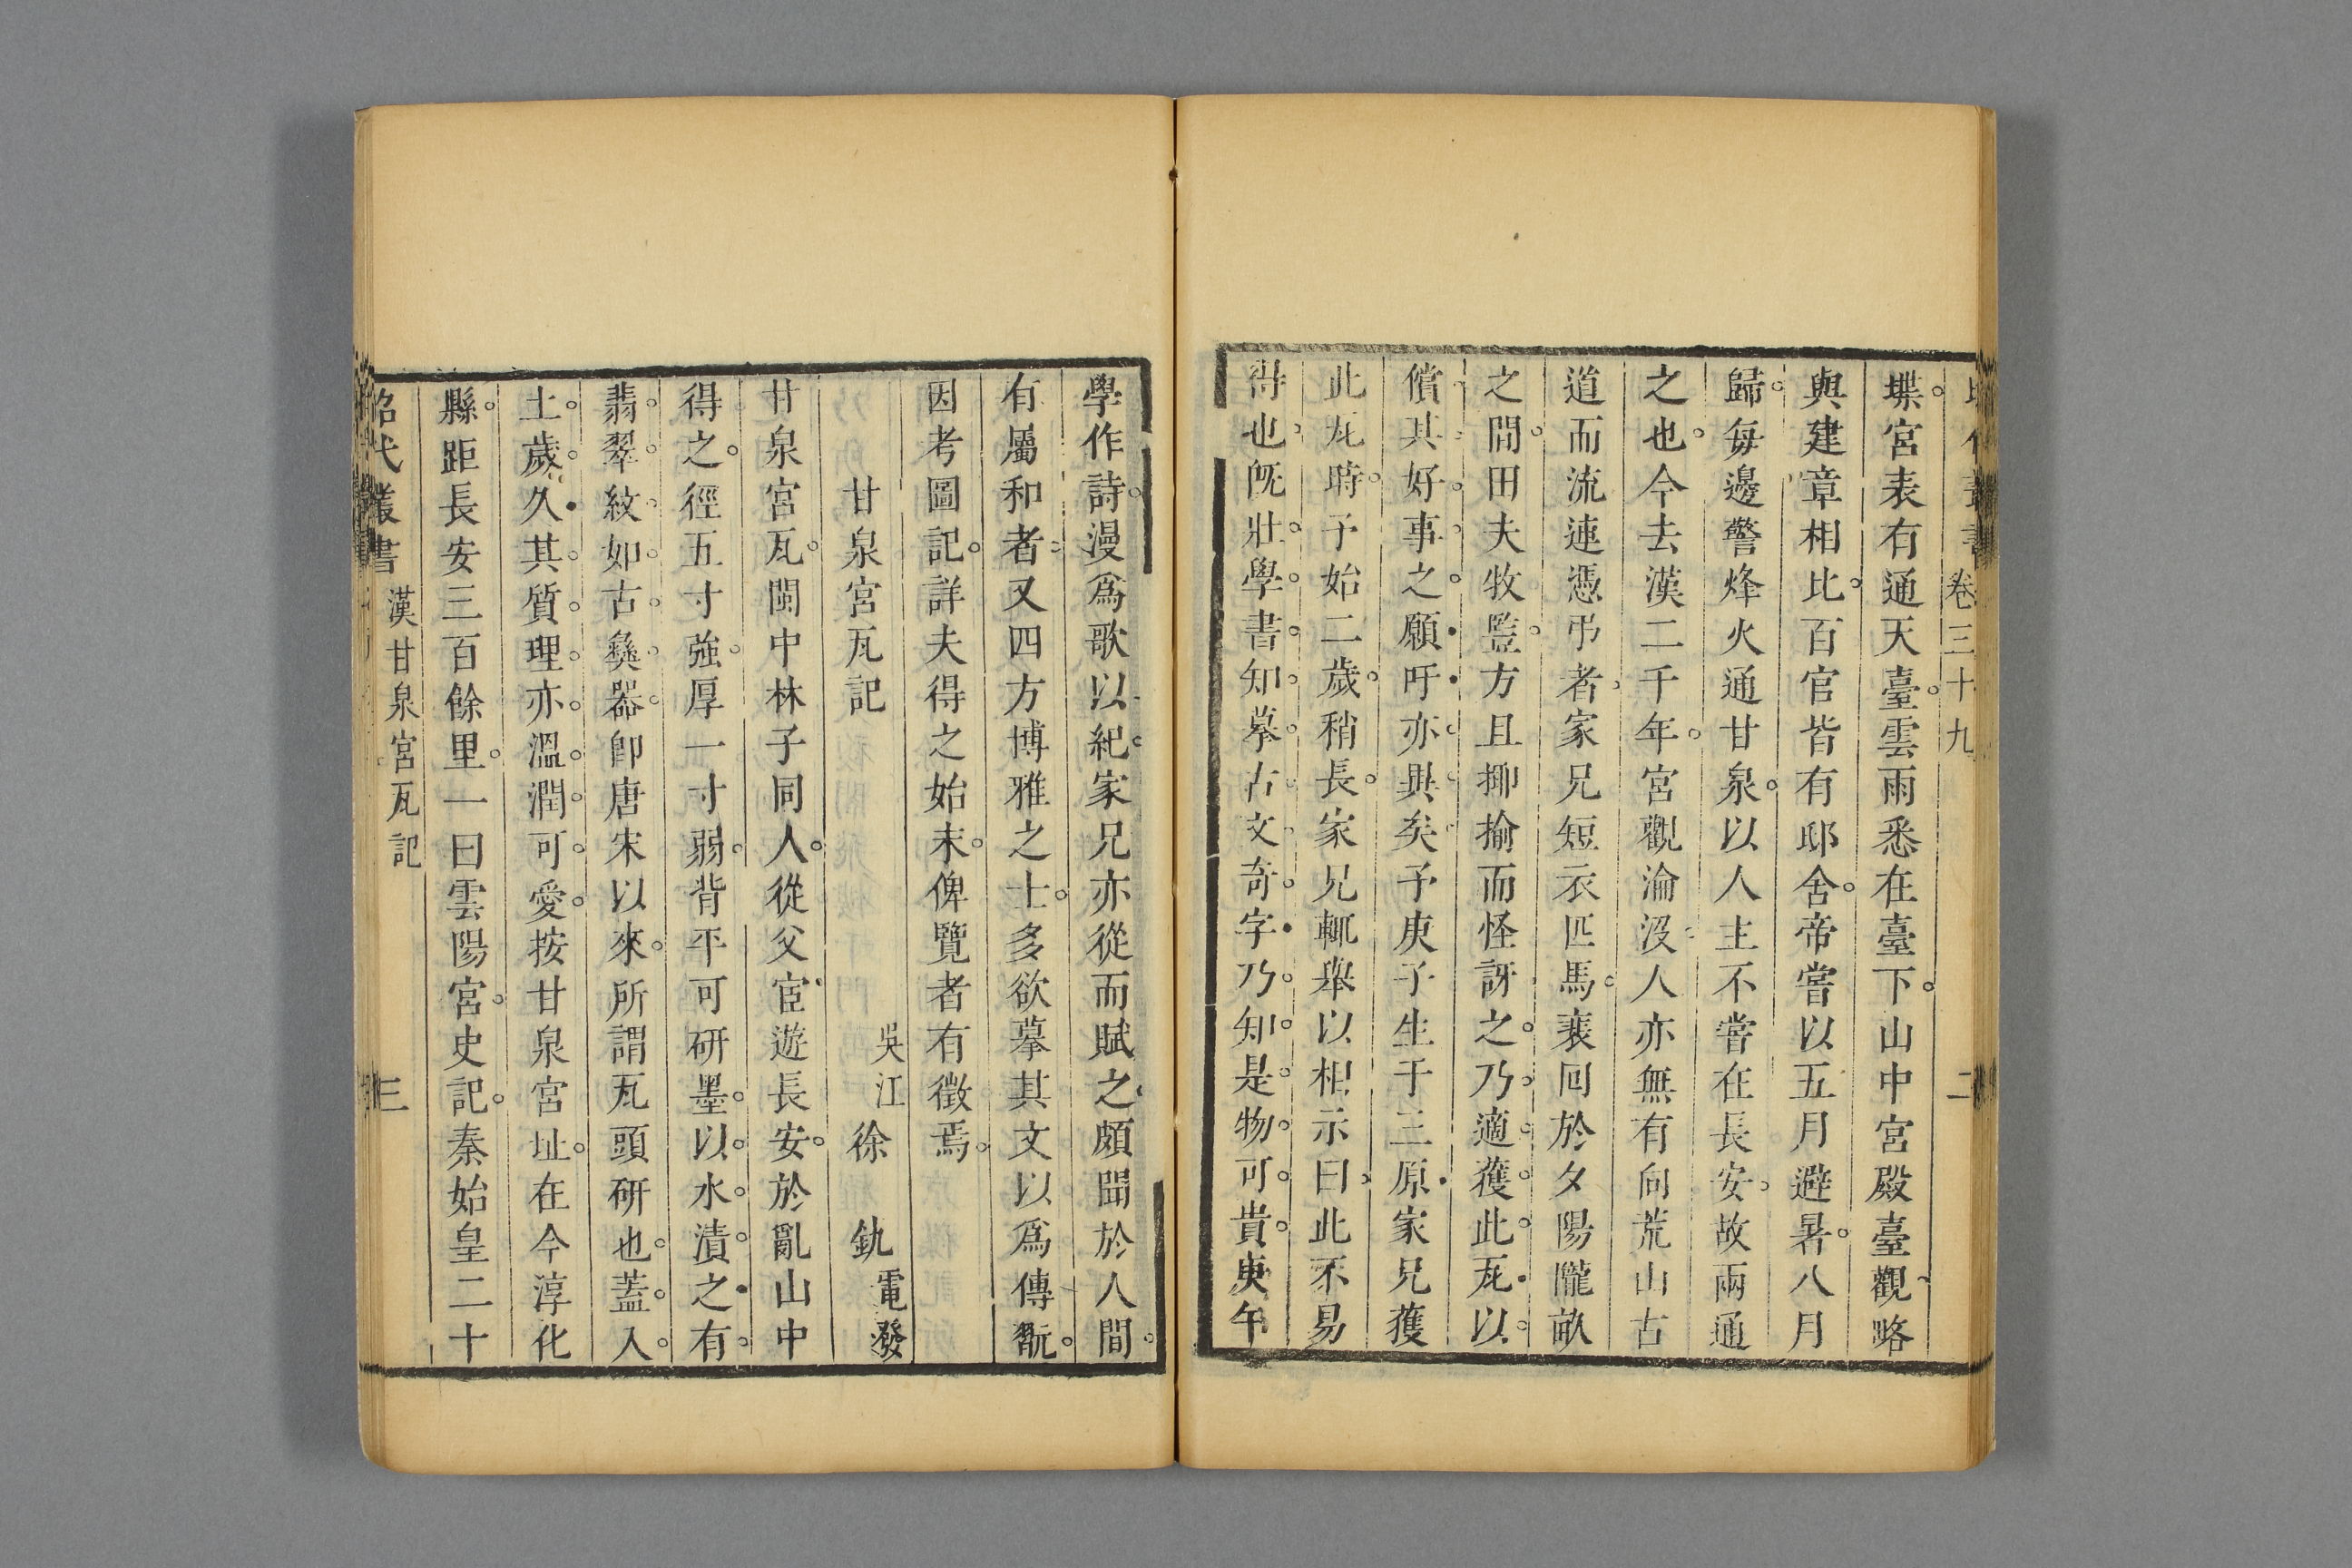 卷三十九
二
堞宮表有通天臺雲雨悉在臺下山中宮殿臺觀略
與建章相比百官皆有邸舍帝嘗以五月避暑八月
歸每邊警烽火通甘泉以人主不嘗在長安故兩通
之也今去漢二千年宮觀淪沒人亦無有向荒山古
道而流連憑弔者家兄短衣匹馬裵回於夕陽隴畝
之間田夫牧豎方且揶揄而怪訝之乃適獲此瓦以
償其好事之願吁亦異矣予庚子生于三原家兄獲
此瓦時予始二歲稍長家兄輒舉以相示曰此不易
得也旣壯學書知摹古文奇字乃知是物可貴庚午
學作詩漫爲歌以紀家兄亦從而賦之頗聞於人間
有屬和者又四方博雅之士多欲摹其文以爲傳翫
因考圖記詳夫得之始末俾覽者有徵焉
甘泉宮瓦記
吳江 徐 釚 電發
甘泉宮瓦閩中林子同人從父宦遊長安於亂山中
得之徑五寸強厚一寸弱背平可研墨以水漬之有
翡翠紋如古彝器卽唐宋以來所謂瓦頭硏也蓋入
土歲久其質理亦溫潤可愛按甘泉宮址在今淳化
縣距長安三百餘里一曰雲陽宮史記秦始皇二十
昭代叢書 漢甘泉宮瓦記
三